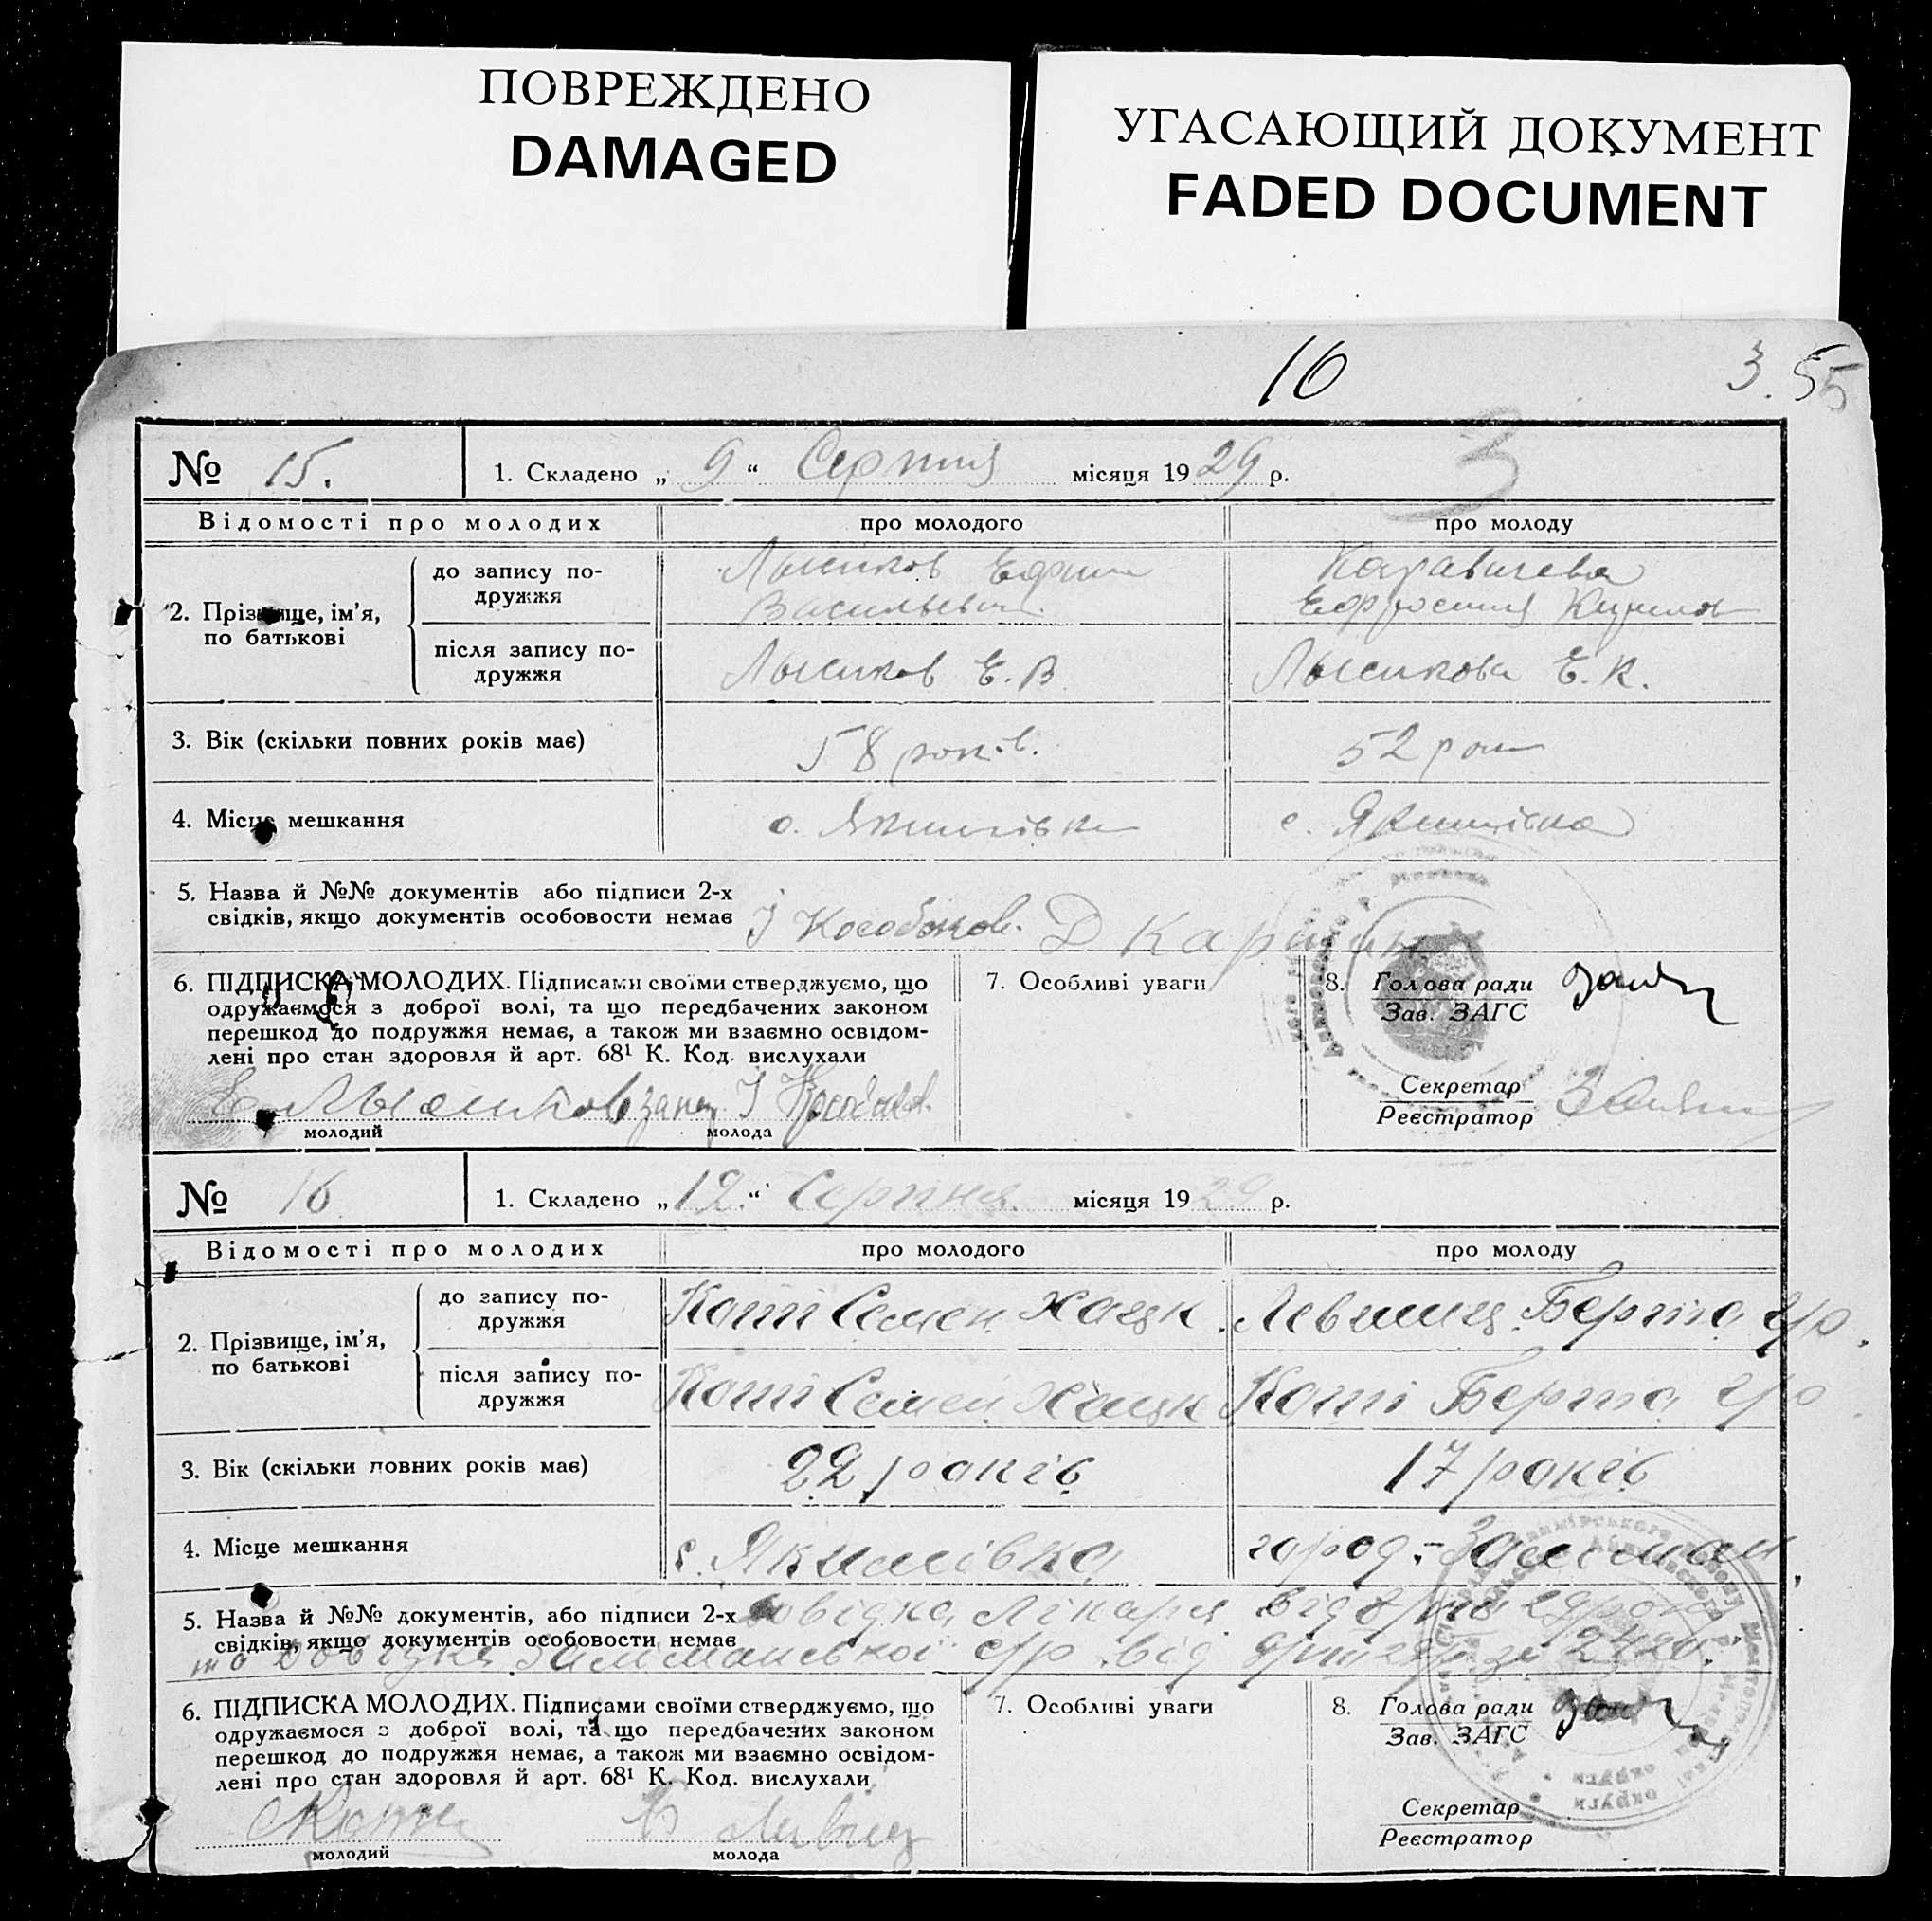 ПОВРЕЖДЕНО
DAMAGED
УГАСАЮЩИЙ ДОКУМЕНТ
FADED DOCUMENT
16
3. 55
3
№ 15. 1. Складено „ 9 “ Серпня місяця 1929 р.
Відомості про молодих про молодого про молоду
2. Прізвище, ім’я, по батькові
до запису подружжя
Лысиков Ефим
Васильевич
Ефросиния Кирил
після запису подружжя
Лысиков Е. В
Лысикова Е. К.
3. Вік (скільки повних років має) 58 років. 52 рок
4. Місце мешкання с. Якимівка с. Якимівка
5. Назва й №№ документів або підписи 2-х
свідків, якщо документів особовости немає І Кособоков. Д
6. ПІДПИСКА МОЛОДИХ. Підписами своїми стверджуємо, що
одружаємося з доброї волі, та що передбачених законом
перешкод до подружжя немає, а також ми взаємно освідом-
лені про стан здоровля й арт. 68¹ К. Код. вислухали
Е Лысиков за нец І Кособоков.
молодий молода
7. Особливі уваги
8. Голова ради
Зав. ЗАГС
Секретар
Реєстратор
№ 16 1. Складено „ 12. “ Серпня місяця 1929 р.
Відомості про молодих про молодого про молоду
2. Прізвище, ім’я, по батькові
до запису подружжя
Котт Семен Хацк.
Левшиц Берта Гр.
після запису подружжя
Котт Семен Хацк
Котт Берта Гр
3. Вік (скільки повних років має) 22 років 17 років
4. Місце мешкання с. Якимівка город.-Зальтман
5. Назва й №№ документів, або підписи 2-х довідка лікаря від
свідків, якщо документів особовости немає
та довідка с/р від за 2420.
6. ПІДПИСКА МОЛОДИХ. Підписами своїми стверджуємо, що
одружаємося з доброї волі, та що передбачених законом
перешкод до подружжя немає, а також ми взаємно освідом-
лені про стан здоровля й арт. 68¹ К. Код. вислухали
молодий молода
7. Особливі уваги
8. Голова ради
Зав. ЗАГС
Секретар
Реєстратор